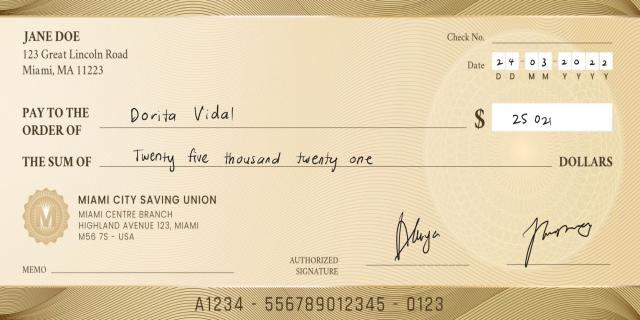 JANE DOE
123 Great Lincoln Road
Miami, MA 11223
Check No.
Date 24-03-2022
D D M M Y Y Y Y
PAY TO THE
ORDER OF Dorita Vidal
$ 25 021
THE SUM OF Twenty five thousand twenty one DOLLARS
M
MIAMI CITY SAVING UNION
MIAMI CENTRE BRANCH
HIGHLAND AVENUE 123, MIAMI
M56 7S - USA
MEMO
AUTHORIZED
SIGNATURE
A1234 - 556789012345 - 0123